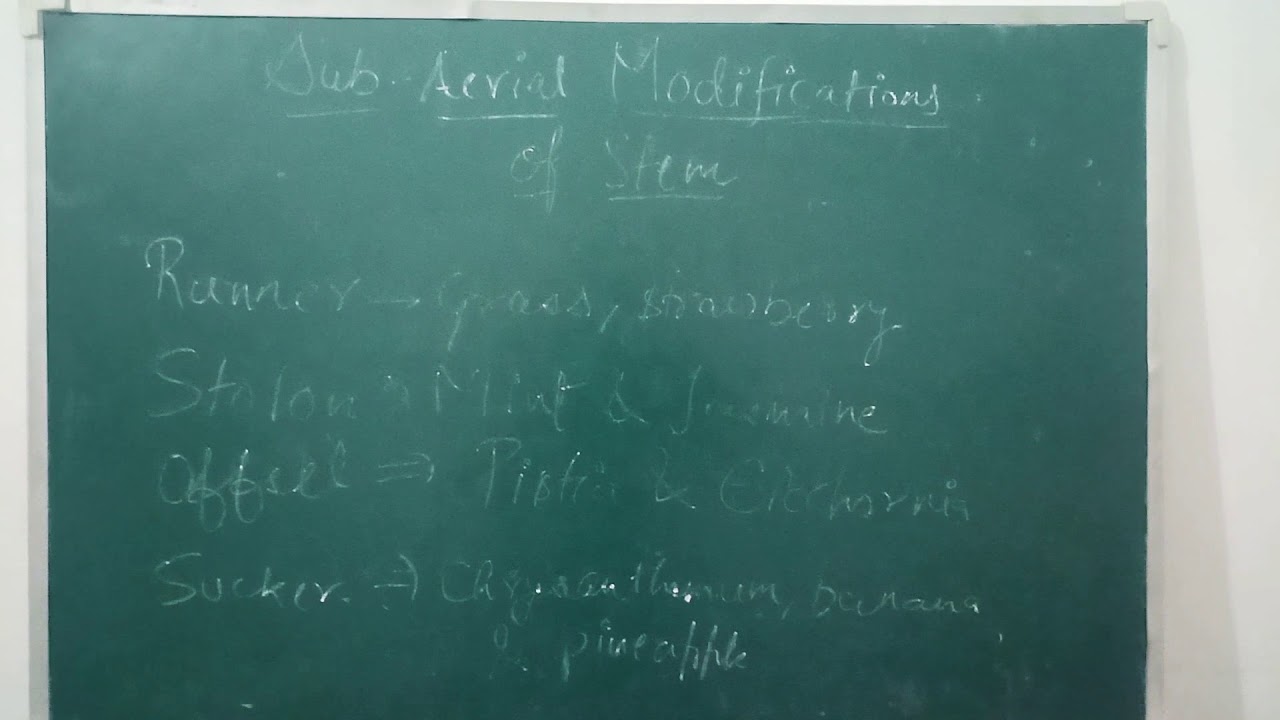 Sub-Aerial Modifications
of Stem
Runner → Grass, strawberry
Stolon → Mint & Jasmine
Offset ⇒ Pistia &
Sucker ⇒ Chrysanthumum, banana
& pineapple